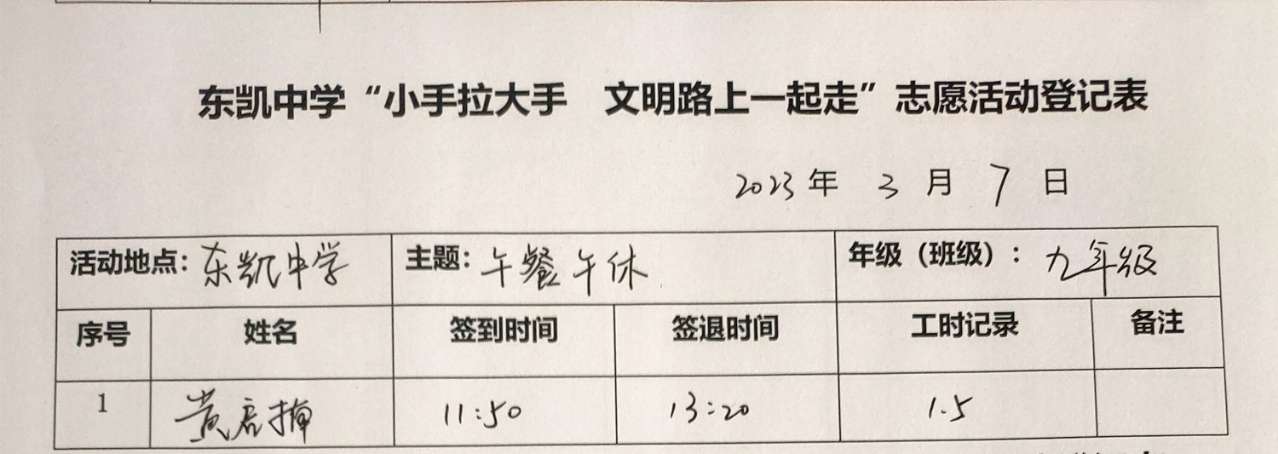 东凯中学“小手拉大手 文明路上一起走”志愿活动登记表
2023年 3月 7日
活动地点：东凯中学 主题：午餐午休 年级（班级）：九年级
序号 姓名 签到时间 签退时间 工时记录 备注
1 黄 11:50 13:20 1.5